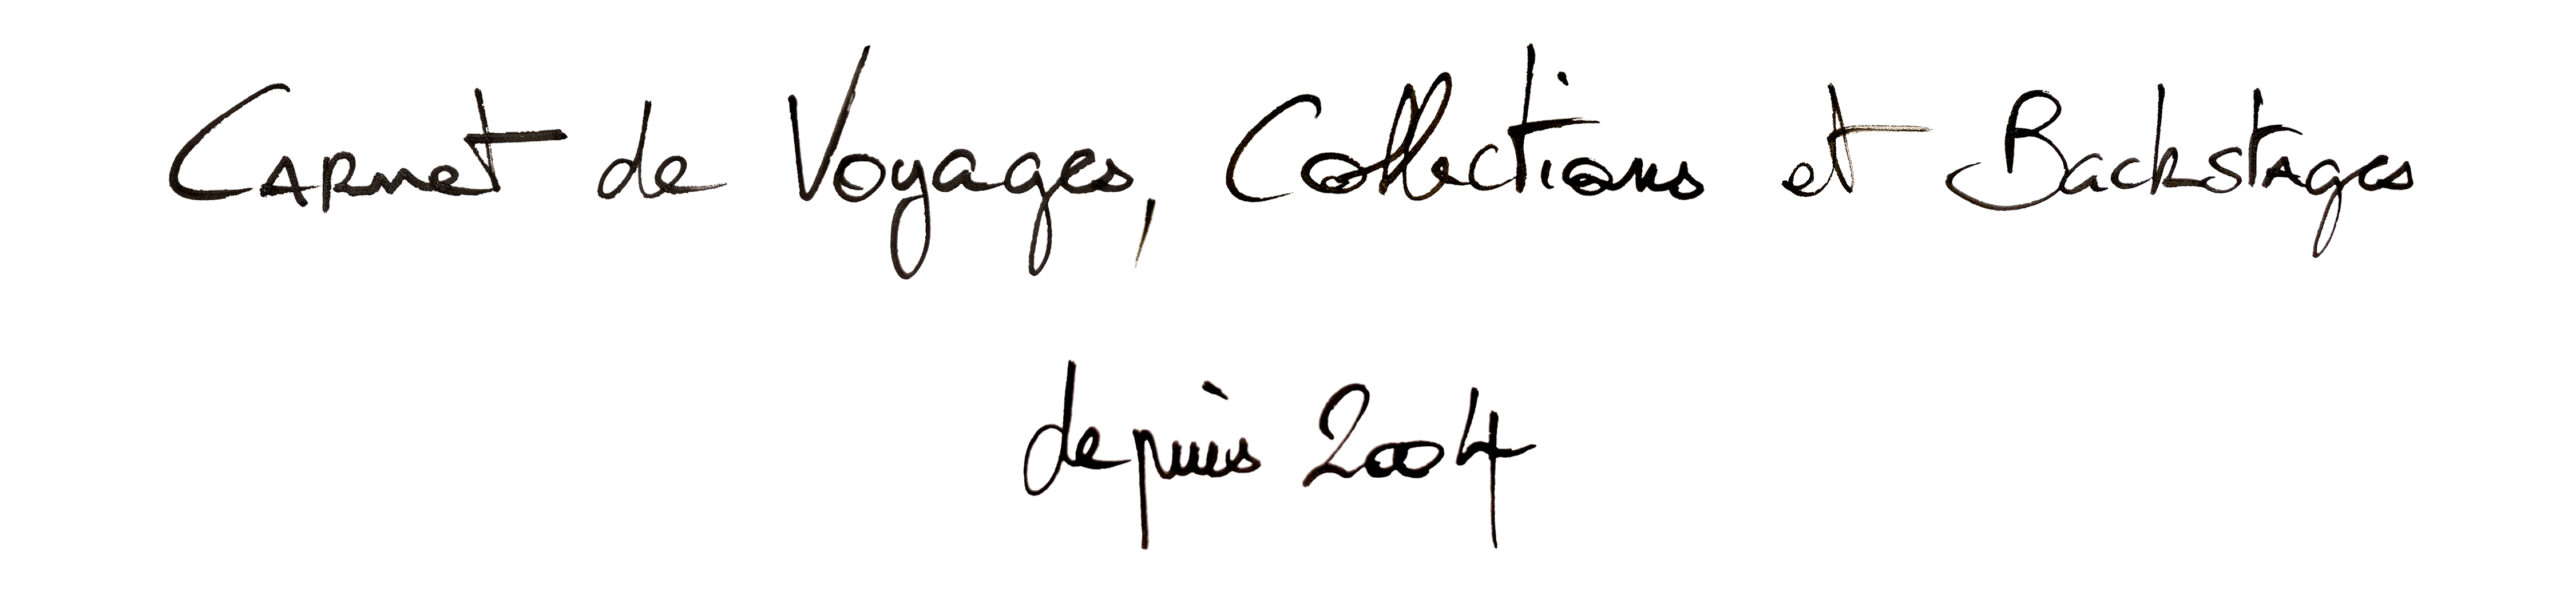 Carnet de Voyages, Collections et Backstages
depuis 2004